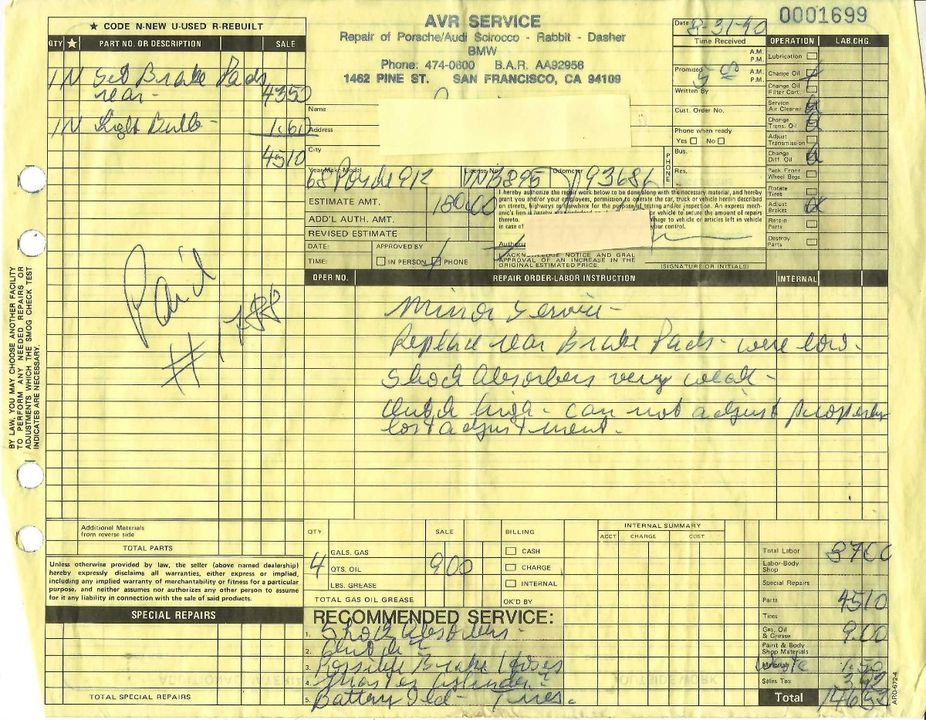 ★ CODE N-NEW U-USED R-REBUILT
QTY ★ PART NO. OR DESCRIPTION SALE
1 N Set Brake Pads
rear - 43 50
1 N Light Bulb - 1.60
45 10
Paid
Additional Materials
from reverse side
TOTAL PARTS
Unless otherwise provided by law, the seller (above named dealership)
hereby expressly disclaims all warranties, either express or implied,
including any implied warranty of merchantability or fitness for a particular
purpose, and neither assumes nor authorizes any other person to assume
for it any liability in connection with the sale of said products.
SPECIAL REPAIRS
TOTAL SPECIAL REPAIRS
BY LAW, YOU MAY CHOOSE ANOTHER FACILITY
TO PERFORM ANY NEEDED REPAIRS OR
ADJUSTMENTS WHICH THE SMOG CHECK TEST
INDICATES ARE NECESSARY.
AVR SERVICE
Repair of Porsche/Audi Scirocco - Rabbit - Dasher
BMW
Phone: 474-0600 B.A.R. AA92956
1462 PINE ST. SAN FRANCISCO, CA 94109
Name
Address
City
Year-Make-Model License No. Odometer
68 Porsche 912 93686
ESTIMATE AMT. 180.00
ADD'L AUTH. AMT.
REVISED ESTIMATE
DATE: APPROVED BY
TIME: IN PERSON PHONE
I hereby authorize the repair work below to be done along with the necessary material, and hereby
grant you and/or your employees, permission to operate the car, truck or vehicle herein described
on streets, highways or elsewhere for the purpose of testing and/or inspection. An express mech-
anic's lien is hereby vehicle to secure the amount of repairs
thereto. damage to vehicle or articles left in vehicle
in case of your control.
ACKNOWLEDGE NOTICE AND ORAL
APPROVAL OF AN INCREASE IN THE
ORIGINAL ESTIMATED PRICE.
(SIGNATURE OR INITIALS)
Date 8-31-90
Time Received
A.M.
P.M.
Promised A.M.
P.M.
Written By
Cust. Order No.
Phone when ready
Yes No
PHONE
Bus.
Res.
0001699
OPERATION LAB.CHG.
Lubrication
Change Oil
Change Oil
Filter Cart.
Service
Air Cleaner
Change
Trans. Oil
Adjust
Transmission
Change
Diff. Oil
Pack Front
Wheel Brgs.
Rotate
Tires
Adjust
Brakes
Retain
Parts
Destroy
Parts
OPER NO. REPAIR ORDER-LABOR INSTRUCTION INTERNAL
Minor Service -
Replace rear Brake Pads - were low.
Shock Absorbers very weak -
Clutch high - can not adjust properly
lost adjustment.
QTY SALE BILLING INTERNAL SUMMARY
ACCT CHARGE COST
GALS. GAS CASH
4 QTS. OIL 9 00 CHARGE
LBS. GREASE INTERNAL
TOTAL GAS OIL GREASE OK'D BY
RECOMMENDED SERVICE:
1. Shock Absorbers -
2. Clutch
3. Possible Brake Hoses
4. Master Cylinder
5. Battery Old - Tires.
Total Labor 87 00
Labor-Body
Shop
Special Repairs
Parts 45 10
Tires
Gas, Oil
& Grease 9.00
Paint & Body
Shop Materials
1.50
Sales Tax
Total
ARO-672-4